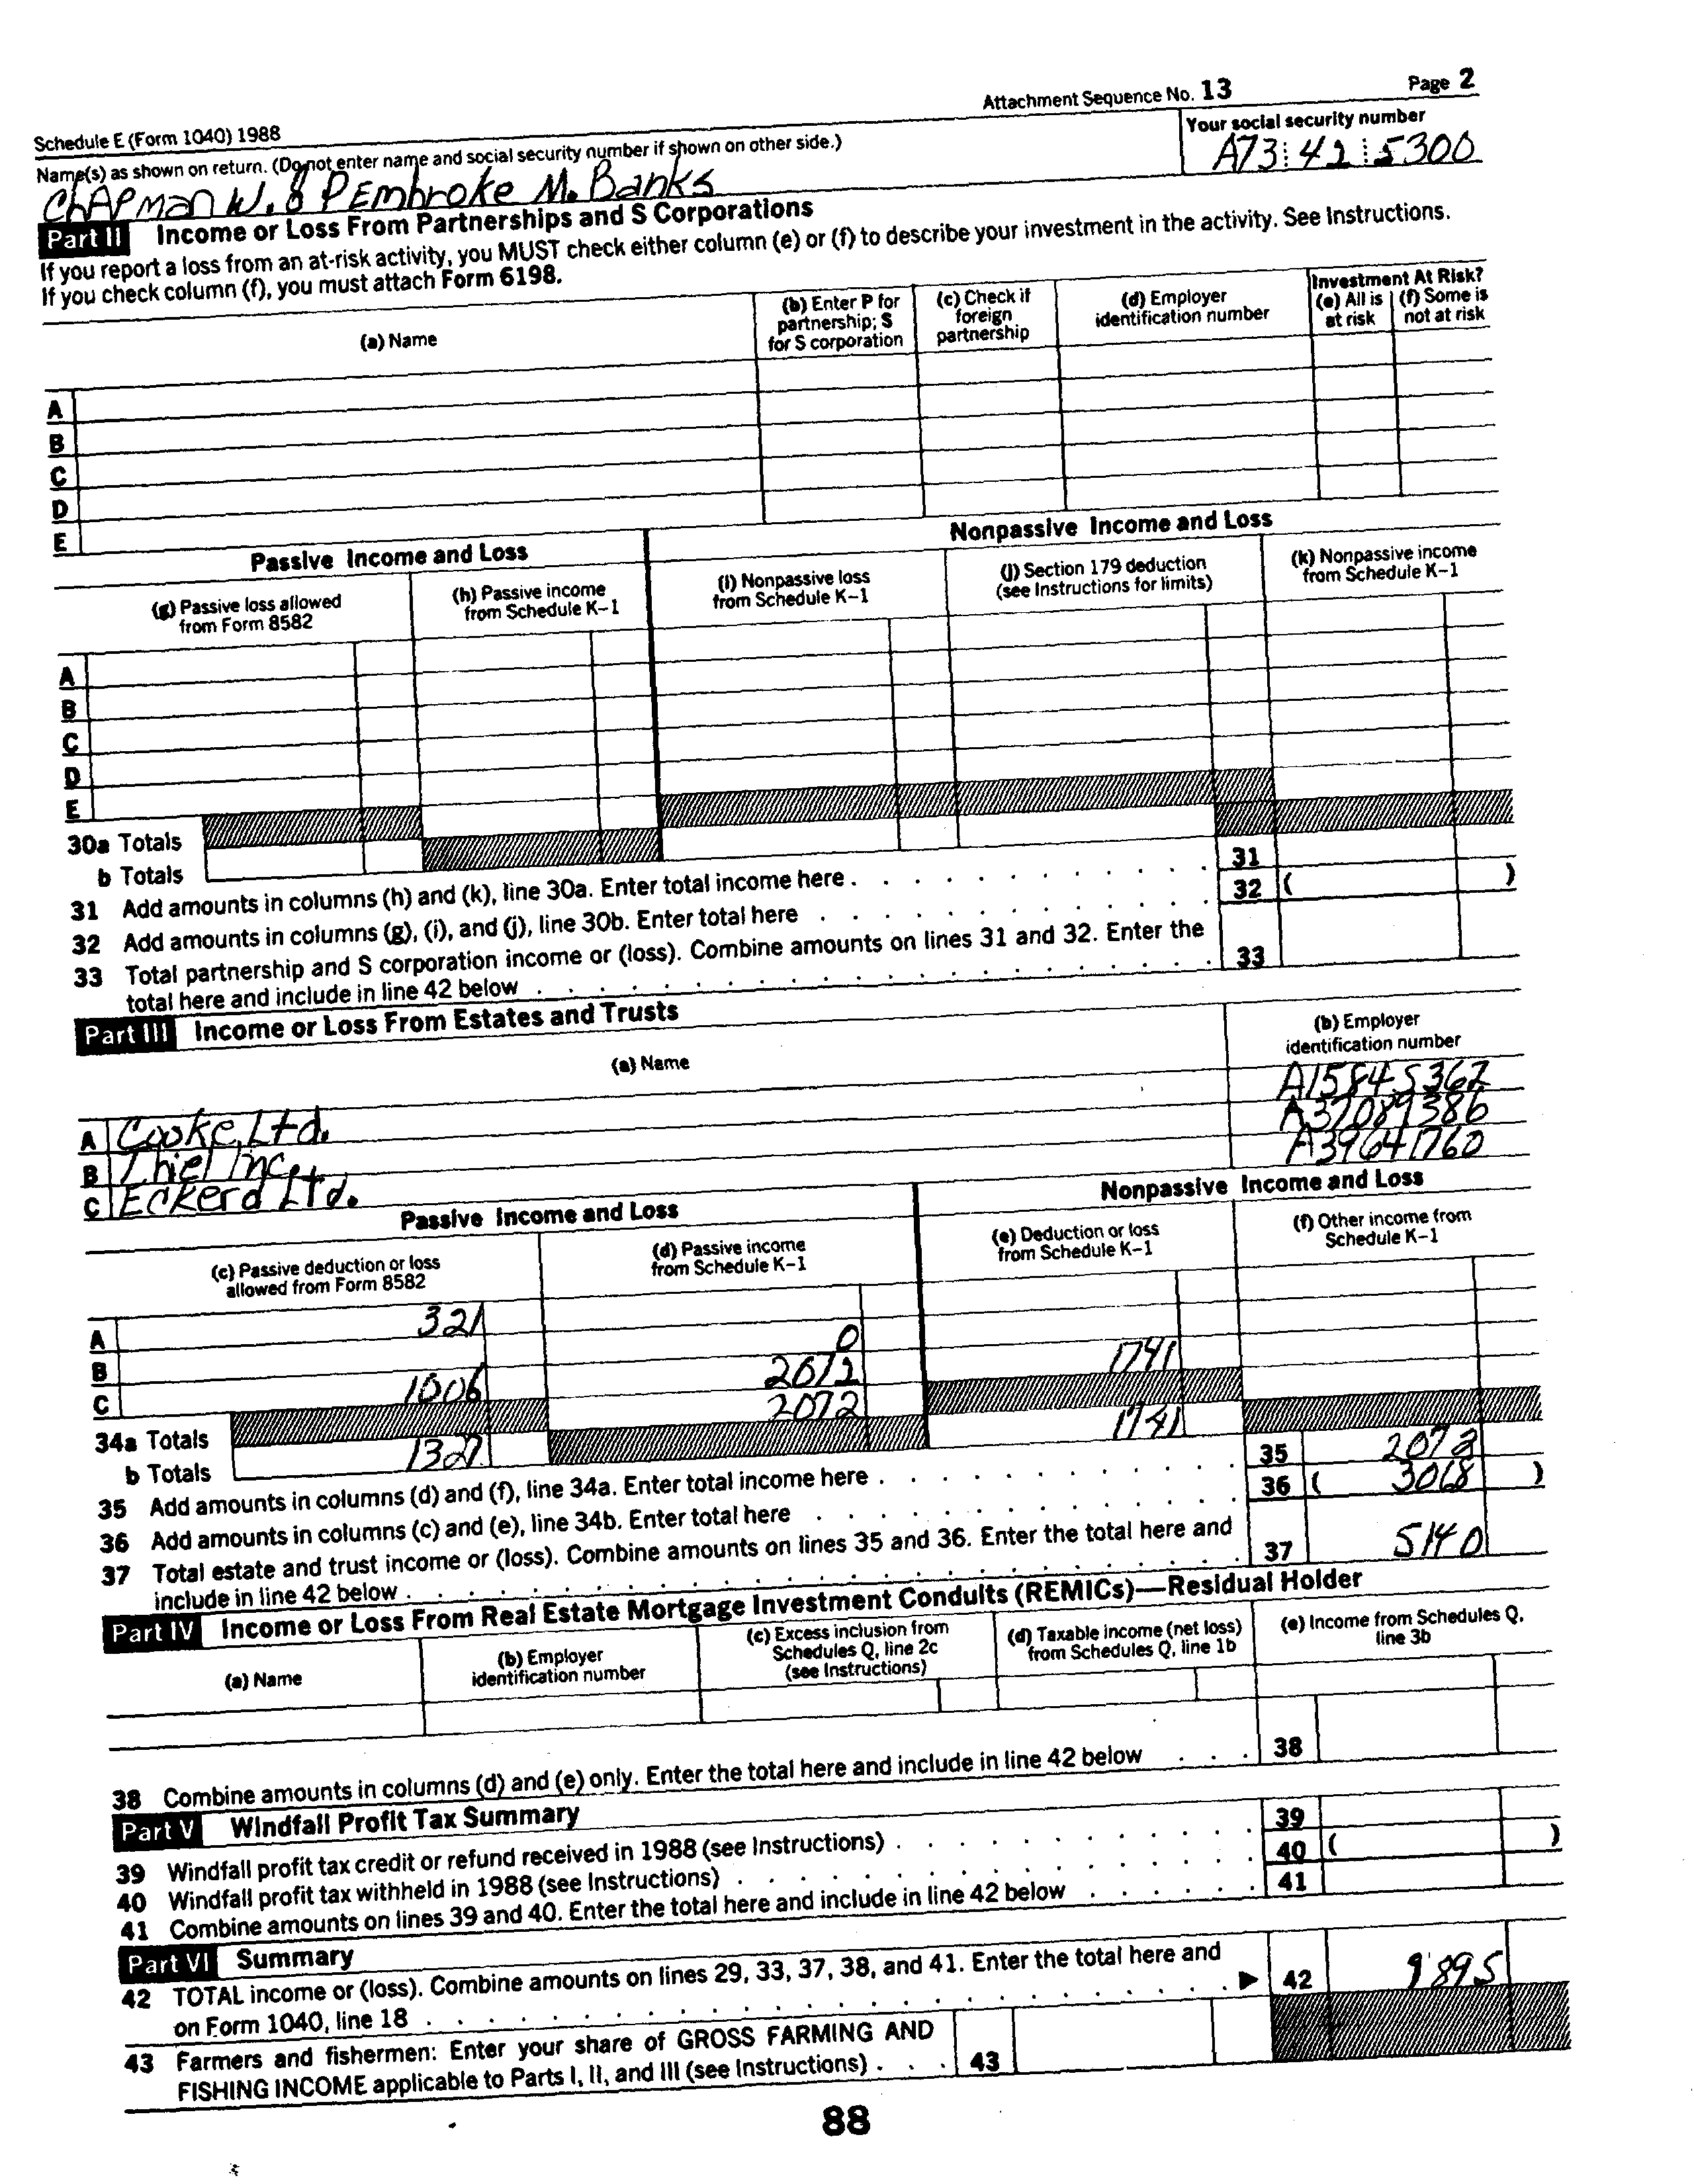 Attachment Sequence No. 13 Page 2
Schedule E (Form 1040) 1988
Name(s) as shown on return. (Do not enter name and social security number if shown on other side.)
Your social security number
ChAPman W. & PEmbroke M. Banks
A73 42 5300
Part II Income or Loss From Partnerships and S Corporations
If you report a loss from an at-risk activity, you MUST check either column (e) or (f) to describe your investment in the activity. See Instructions.
If you check column (f), you must attach Form 6198.
(a) Name
(b) Enter P for partnership; S for S corporation
(c) Check if foreign partnership
(d) Employer identification number
Investment At Risk?
(e) All is at risk
(f) Some is not at risk
A
B
C
D
E
Passive Income and Loss
Nonpassive Income and Loss
(g) Passive loss allowed from Form 8582
(h) Passive income from Schedule K–1
(i) Nonpassive loss from Schedule K–1
(j) Section 179 deduction (see Instructions for limits)
(k) Nonpassive income from Schedule K–1
A
B
C
D
E
30a Totals
b Totals
31 Add amounts in columns (h) and (k), line 30a. Enter total income here . . . . . . . . . . . 31
32 Add amounts in columns (g), (i), and (j), line 30b. Enter total here . . . . . . . . . . . . 32 ( )
33 Total partnership and S corporation income or (loss). Combine amounts on lines 31 and 32. Enter the
total here and include in line 42 below . . . . . . . . . . . . . . . . . . . . . 33
Part III Income or Loss From Estates and Trusts
(a) Name
(b) Employer identification number
A Cooke, Ltd. A15845362
B Thiel Inc. A37089386
C Eckerd Ltd. A39641760
Passive Income and Loss
Nonpassive Income and Loss
(c) Passive deduction or loss allowed from Form 8582
(d) Passive income from Schedule K–1
(e) Deduction or loss from Schedule K–1
(f) Other income from Schedule K–1
A 321
B 0
C 1006 2072 1741
34a Totals 2072
b Totals 1327 1741
35 Add amounts in columns (d) and (f), line 34a. Enter total income here . . . . . . . . . . 35 2072
36 Add amounts in columns (c) and (e), line 34b. Enter total here . . . . . . . . . . . . 36 ( 3068 )
37 Total estate and trust income or (loss). Combine amounts on lines 35 and 36. Enter the total here and
include in line 42 below . . . . . . . . . . . . . . . . . . . . . . . 37 5140
Part IV Income or Loss From Real Estate Mortgage Investment Conduits (REMICs)—Residual Holder
(a) Name
(b) Employer identification number
(c) Excess inclusion from Schedules Q, line 2c (see Instructions)
(d) Taxable income (net loss) from Schedules Q, line 1b
(e) Income from Schedules Q, line 3b
38 Combine amounts in columns (d) and (e) only. Enter the total here and include in line 42 below . . . 38
Part V Windfall Profit Tax Summary
39 Windfall profit tax credit or refund received in 1988 (see Instructions) . . . . . . . . . . 39
40 Windfall profit tax withheld in 1988 (see Instructions) . . . . . . . . . . . . . . 40 ( )
41 Combine amounts on lines 39 and 40. Enter the total here and include in line 42 below . . . . . . 41
Part VI Summary
42 TOTAL income or (loss). Combine amounts on lines 29, 33, 37, 38, and 41. Enter the total here and
on Form 1040, line 18 . . . . . . . . . . . . . . . . . . . . . ▶ 42 9895
43 Farmers and fishermen: Enter your share of GROSS FARMING AND
FISHING INCOME applicable to Parts I, II, and III (see Instructions) . . . 43
88